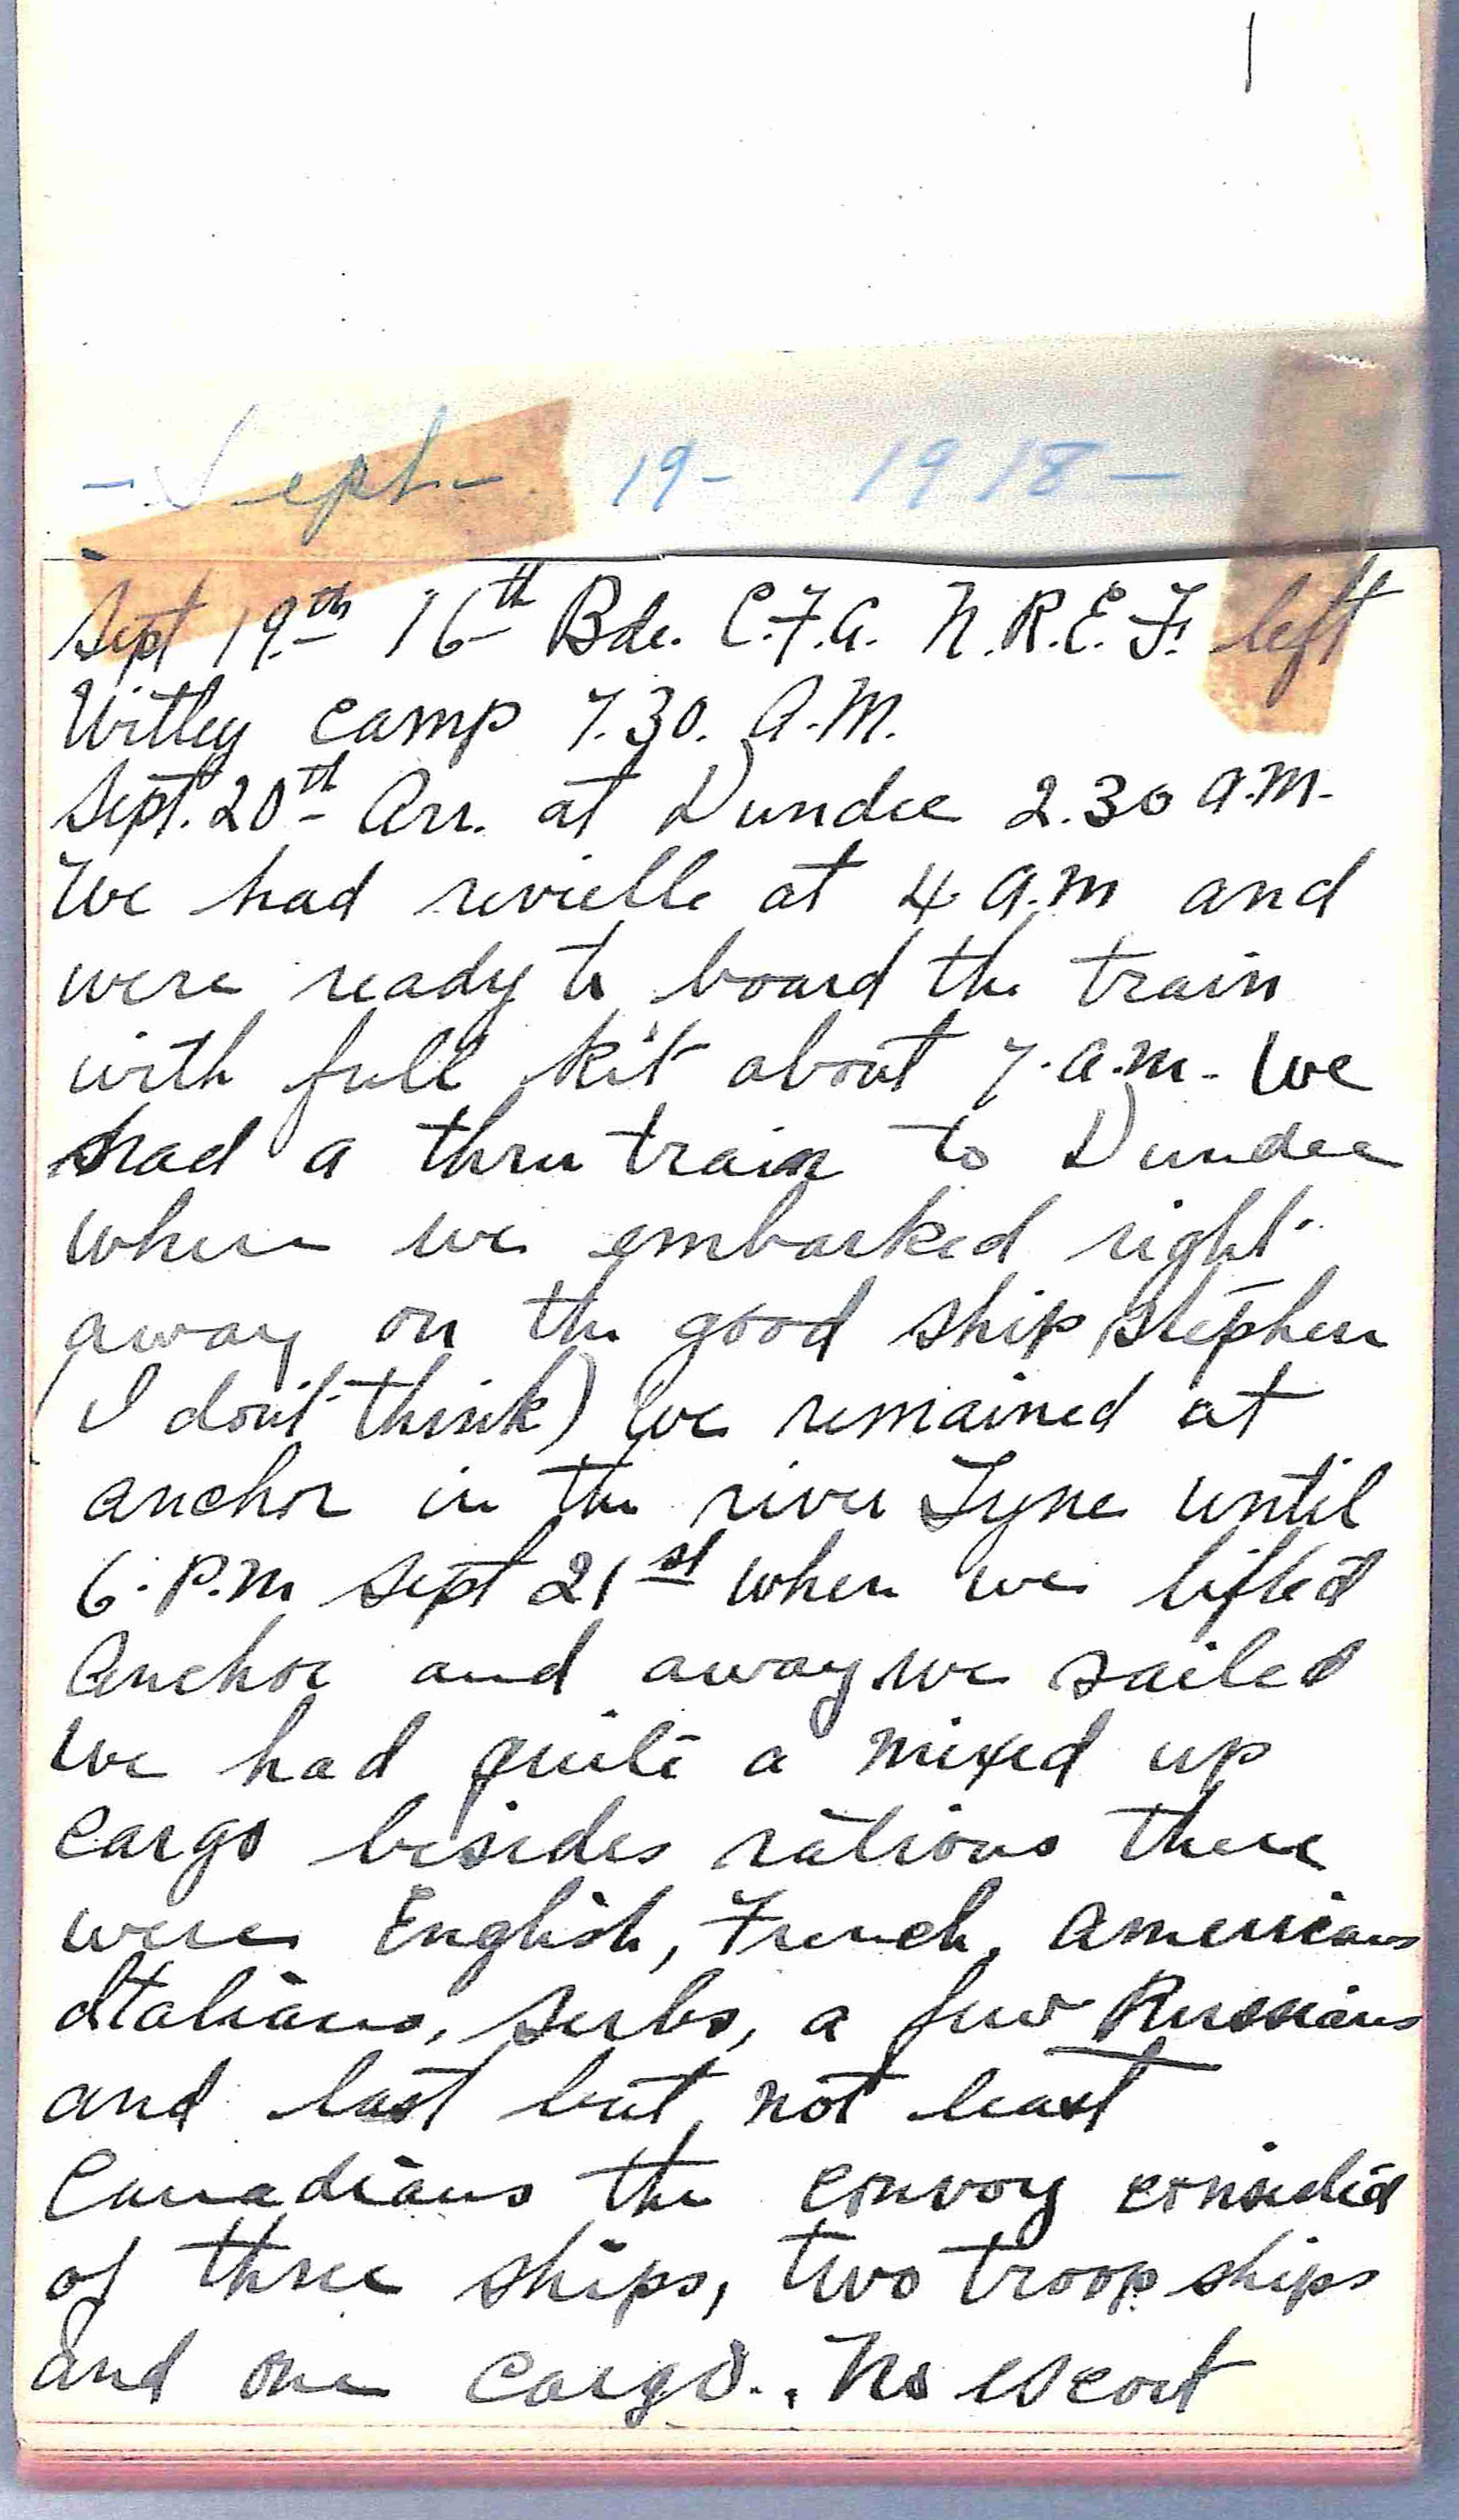 1
- Sept - 19 - 1918 -
Sept 19.th 16th Bde. C.F.A. N.R.E.F. left
Witley camp 7.30. A.M.
Sept. 20th Arr. at Dundee 2.30 a.m.
We had revielle at 4 a.m and
were ready to board the train
with full kit about 7.a.m. We
had a thru train to Dundee
where we embarked right
away on the good ship Stephen
(I don't think) We remained at
anchor in the river Tyne until
6. P.M Sept 21st when we lifted
Anchor and away we sailed
We had quite a mixed up
cargo besides rations there
were English, French, Americans
Italians, Serbs, a few Russians
and last but not least
Canadians the convoy consisted
of three ships, two troop ships
and one cargo. No escort